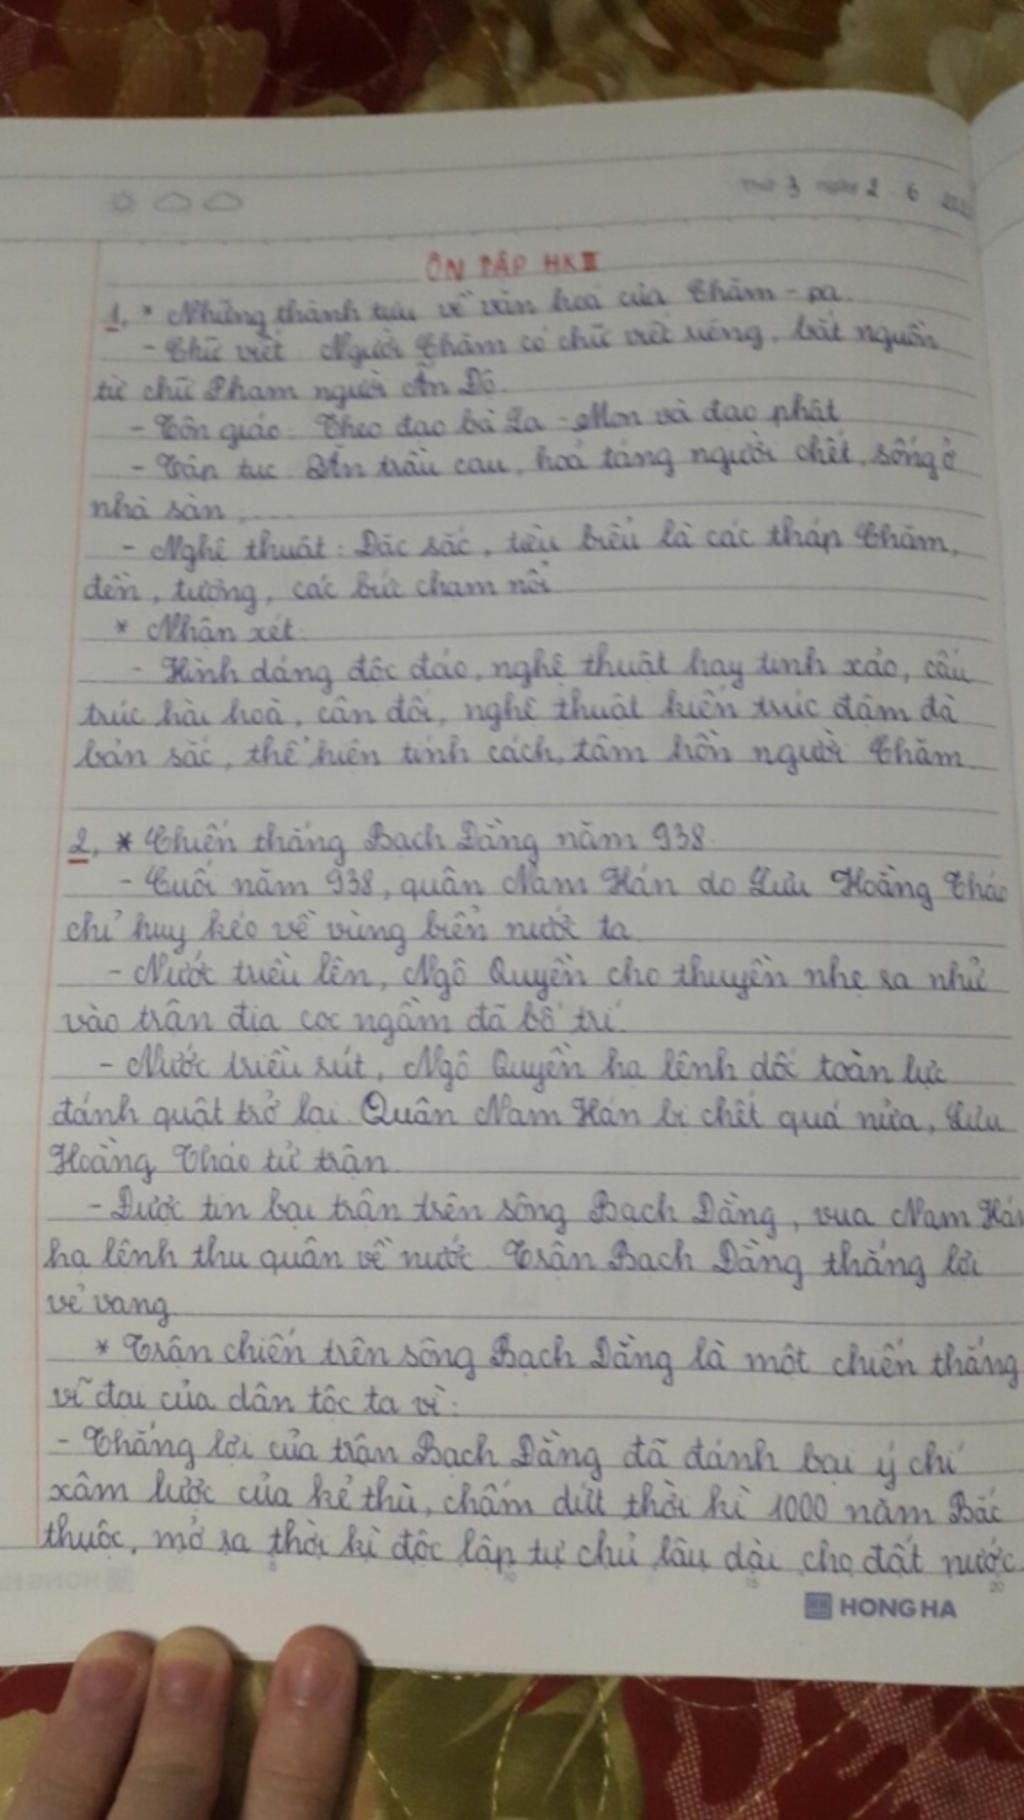 Thứ 3 ngày 2 6
ÔN TẬP HKII
1. * Những thành tựu về văn hoá của Chăm - pa.
- Chữ viết: Người Chăm có chữ viết riêng, bắt nguồn
từ chữ Phạm người Ấn Độ
- Tôn giáo: Theo đạo bà La - Mon và đạo phật
- Tập tục: Ăn trầu cau, hoả táng người chết, sống ở
nhà sàn, ....
- Nghệ thuật: Đặc sắc, tiêu biểu là các tháp Chăm,
đền, tượng, các bức chạm nổi
* Nhận xét:
- Hình dáng độc đáo, nghệ thuật hay tinh xảo, cấu
trúc hài hoà, cân đối, nghệ thuật kiến trúc đậm đà
bản sắc, thể hiện tính cách, tâm hồn người Chăm.
2. * Chiến thắng Bạch Đằng năm 938.
- Cuối năm 938, quân Nam Hán do Lưu Hoằng Tháo
chỉ huy kéo về vùng biển nước ta
- Nước triều lên, Ngô Quyền cho thuyền nhẹ ra nhử
vào trận địa cọc ngầm đã bố trí.
- Nước triều rút, Ngô Quyền hạ lệnh dốc toàn lực
đánh quật trở lại. Quân Nam Hán bị chết quá nửa, Lưu
Hoằng Tháo tử trận.
- Được tin bại trận trên sông Bạch Đằng, vua Nam Hán
hạ lệnh thu quân về nước. Trận Bạch Đằng thắng lợi
vẻ vang
* Trận chiến trên sông Bạch Đằng là một chiến thắng
vĩ đại của dân tộc ta vì:
- Thắng lợi của trận Bạch Đằng đã đánh bại ý chí
xâm lược của kẻ thù, chấm dứt thời kì 1000 năm Bắc
thuộc, mở ra thời kì độc lập tự chủ lâu dài cho đất nước
HONG HA